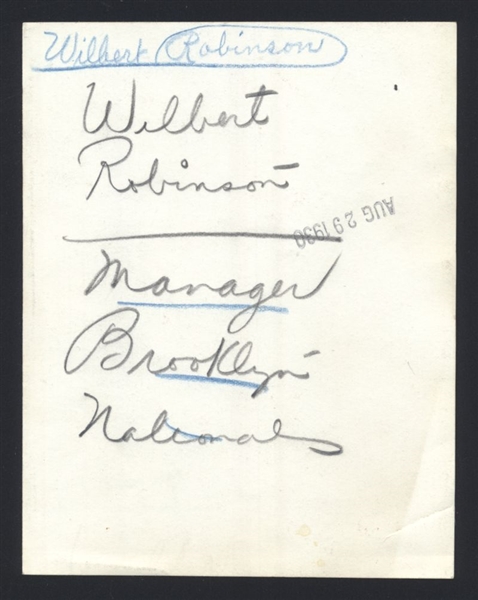 Wilbert Robinson
Wilbert
Robinson
AUG 29 1930
Manager
Brooklyn
Nationals